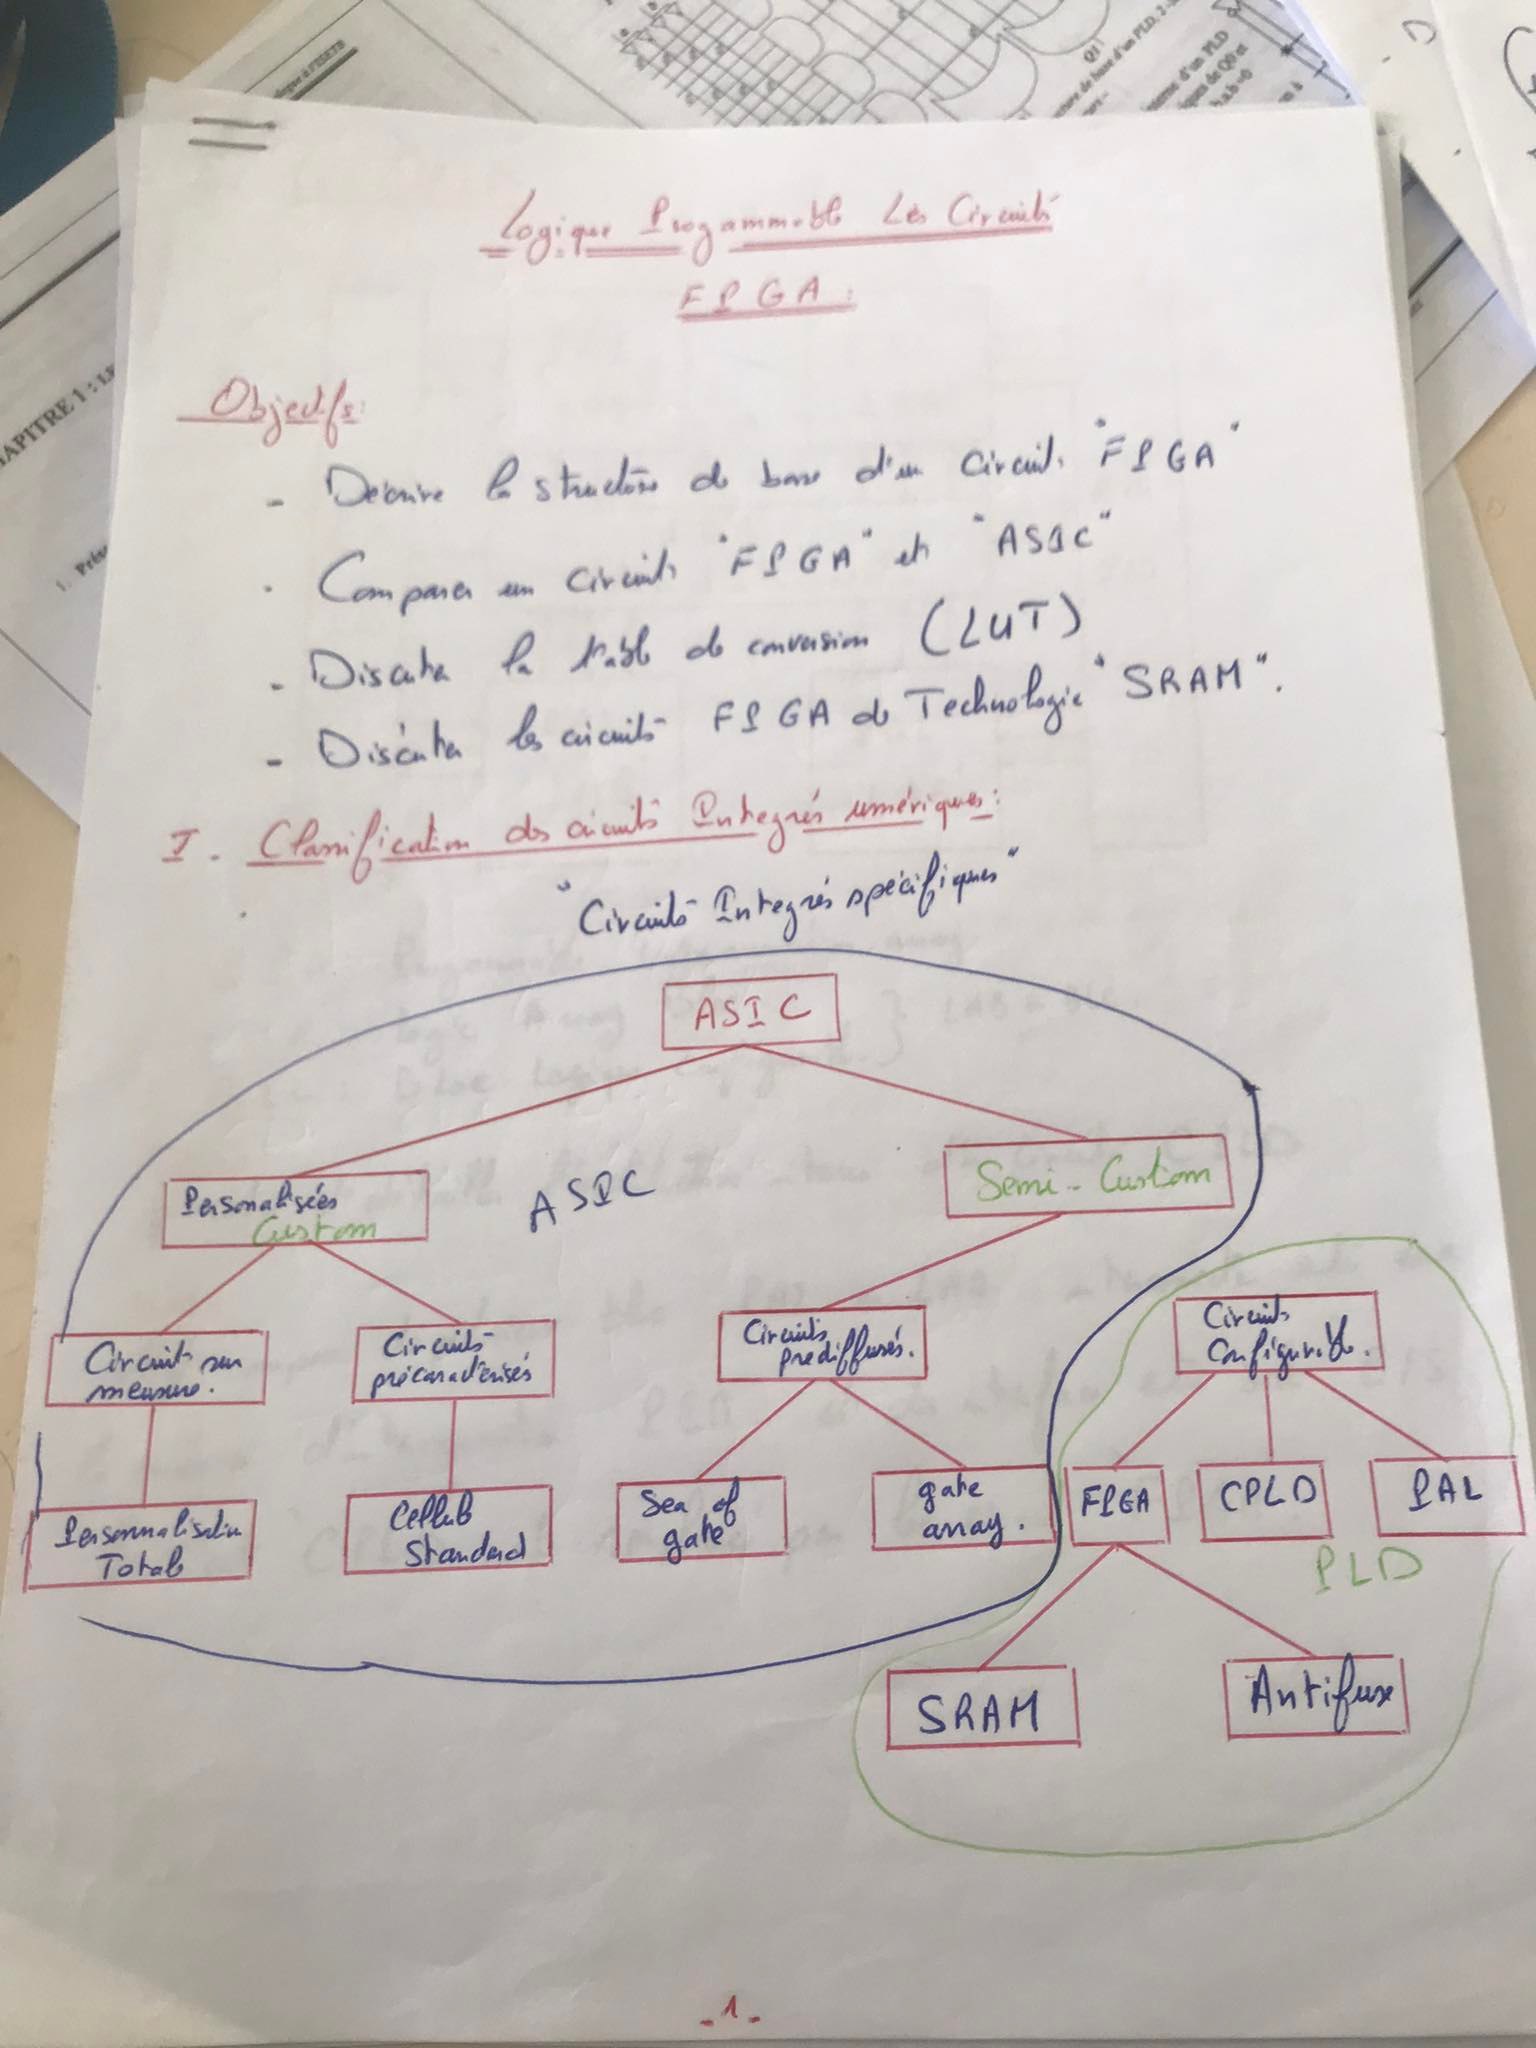 Logique Progammable Les Circuits
FPGA :
Objectifs :
- Décrire la structure de base d'un circuit "FPGA"
- Comparer un circuit "FPGA" et "ASIC"
- Discuter la table de conversion (LUT)
- Discuter les circuits FPGA de Technologie "SRAM".
I - Classification des circuits Intégrés numériques :
"Circuits Integrés spécifiques"
ASIC
Personalisées
Custom
ASIC
Semi-Custom
Circuit sur
mesure.
Circuits
précaractérisés
Circuits
prediffusés.
Circuits
Configurable.
Personnalisation
Totale
Cellule
Standard
Sea of
gate
gate
array.
FPGA
CPLD
PAL
PLD
SRAM
Antifuse
- 1 -
APITRE 1 : LE
Q1
cture de base d'un PLD